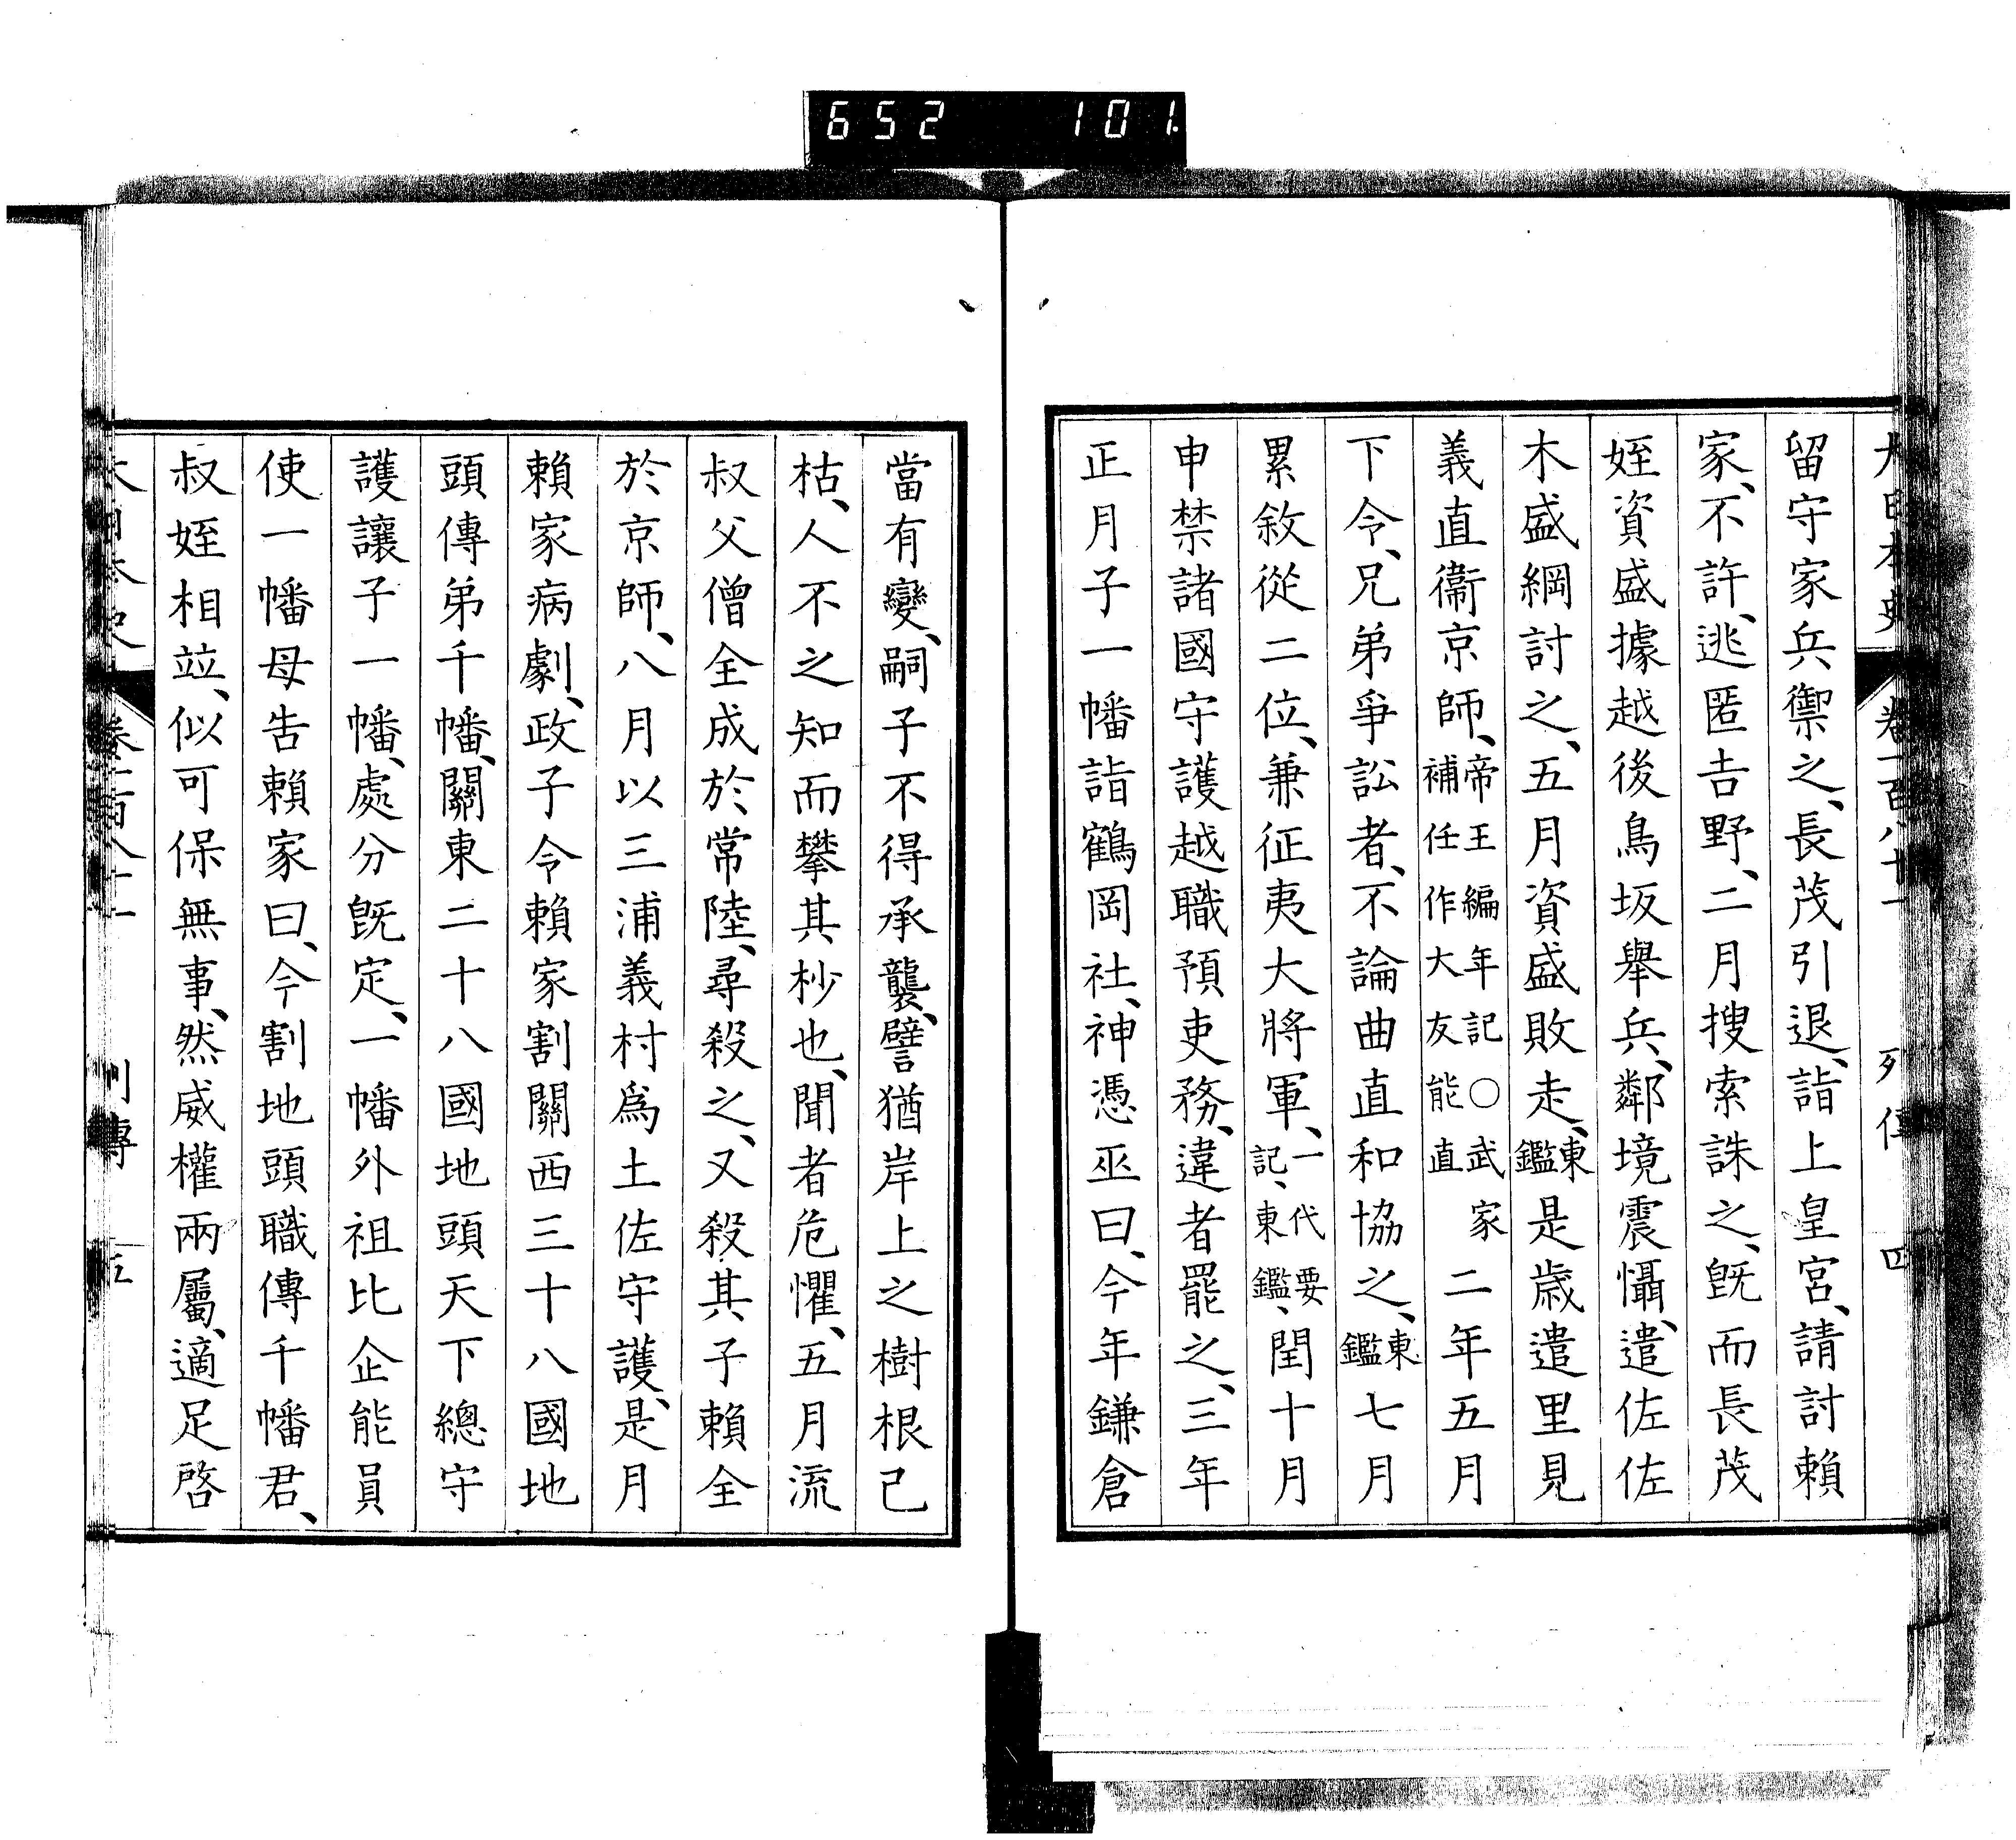 652 101.
大日本史 卷一百八十一 列傳 四
留守家兵禦之、長茂引退、詣上皇宮、請討賴
家、不許、逃匿吉野、二月搜索誅之、既而長茂
姪資盛據越後鳥坂舉兵、鄰境震懾、遣佐佐
木盛綱討之、五月資盛敗走、東鑑是歲遣里見
義直衞京師、帝王編年記○武家補任作大友能直二年五月
下令、兄弟爭訟者、不論曲直和協之、東鑑七月
累敘從二位、兼征夷大將軍、一代要記、東鑑、閏十月
申禁諸國守護越職預吏務、違者罷之、三年
正月子一幡詣鶴岡社、神憑巫曰、今年鎌倉
當有變、嗣子不得承襲、譬猶岸上之樹根已
枯、人不之知而攀其杪也、聞者危懼、五月流
叔父僧全成於常陸、尋殺之、又殺其子賴全
於京師、八月以三浦義村爲土佐守護、是月
賴家病劇、政子令賴家割關西三十八國地
頭傳弟千幡、關東二十八國地頭天下總守
護讓子一幡、處分既定、一幡外祖比企能員
使一幡母告賴家曰、今割地頭職傳千幡君、
叔姪相竝、似可保無事、然威權兩屬、適足啓
大日本史 卷一百八十一 列傳 五